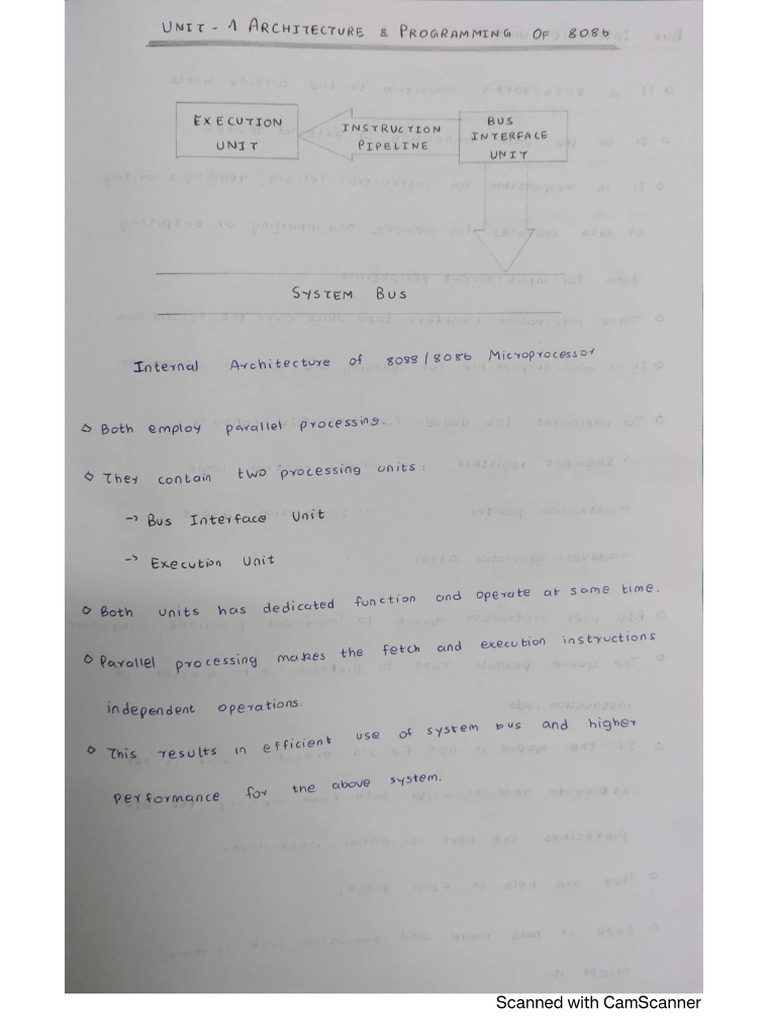 UNIT - 1 ARCHITECTURE & PROGRAMMING OF 8086
EXECUTION
UNIT
INSTRUCTION
PIPELINE
BUS
INTERFACE
UNIT
SYSTEM BUS
Internal Architecture of 8088/8086 Microprocessor
◇ Both employ parallel processing.
◇ They contain two processing units:
-> Bus Interface Unit
-> Execution Unit
◇ Both units has dedicated function and operate at same time.
◇ Parallel processing makes the fetch and execution instructions
independent operations.
◇ This results in efficient use of system bus and higher
performance for the above system.
Scanned with CamScanner